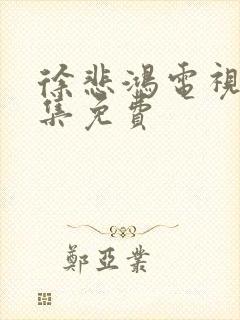 徐悲鴻電視
集免費
鄭亞業